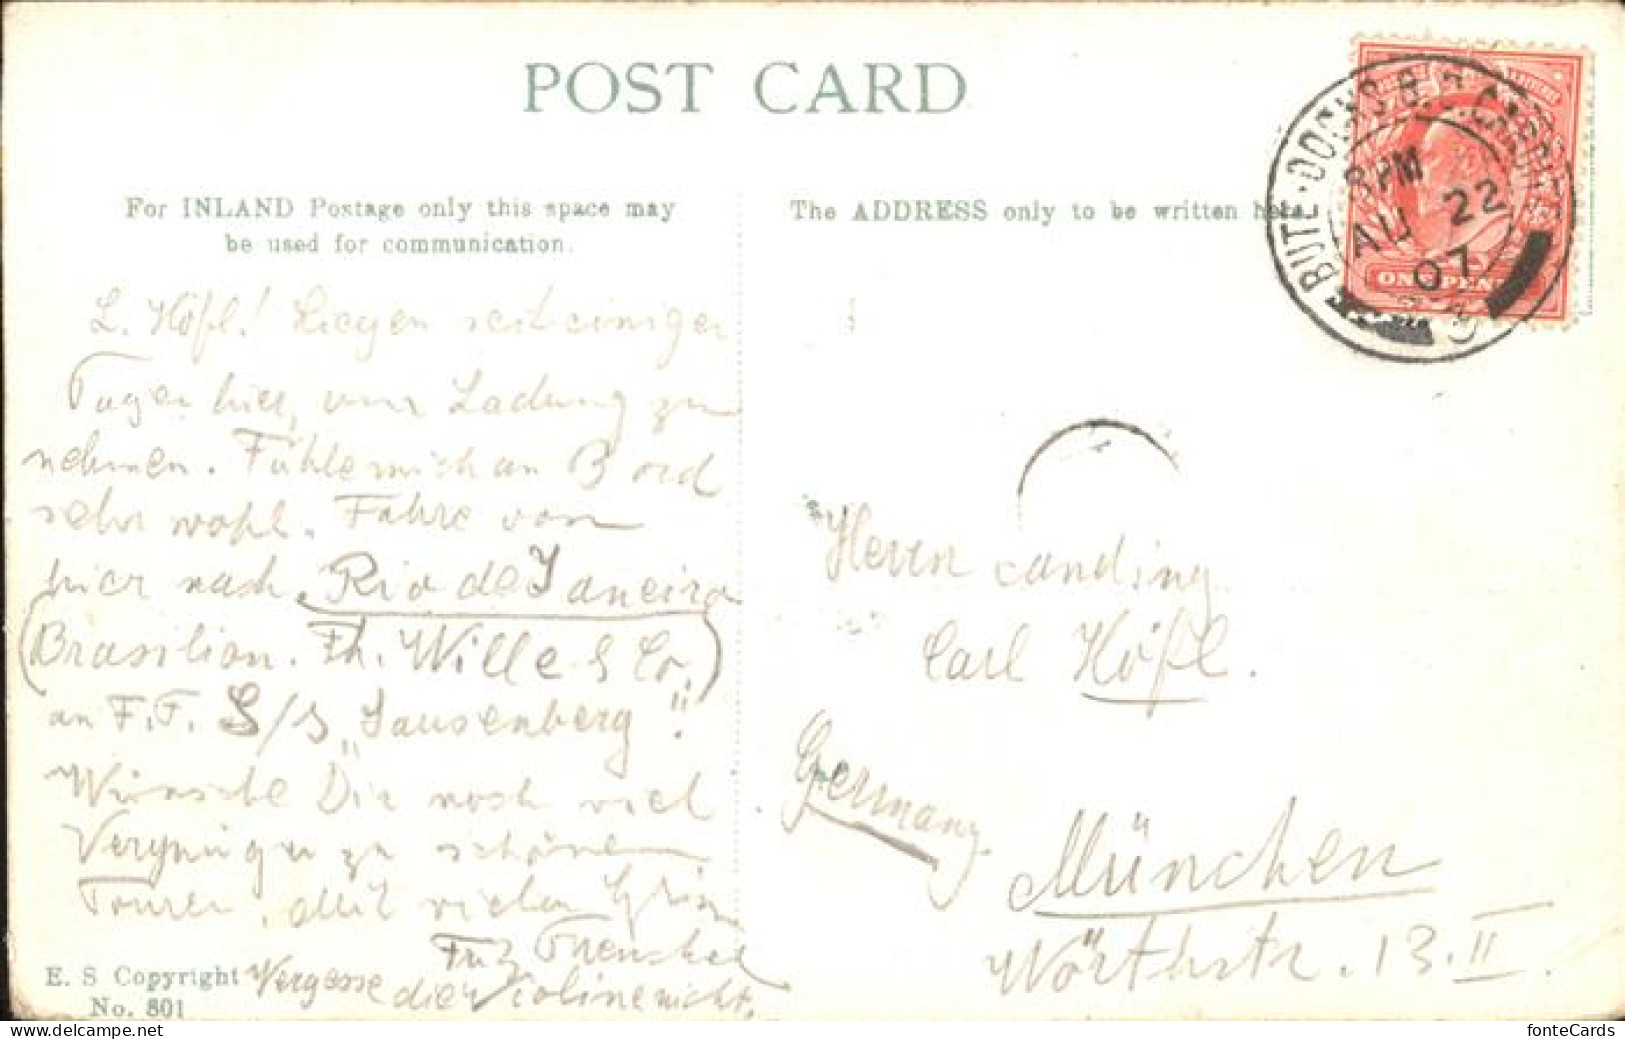 POST CARD
For INLAND Postage only this space may
be used for communication.
The ADDRESS only to be written here.
BUTE-DOCKS B.O. CARDIFF
8 PM
AU 22
07
ONE PENNY
L. Höfl! Liegen seit einigen
Tagen hier, um Ladung zu
nehmen. Fühle mich an Bord
sehr wohl. Fahre von
hier nach Rio de Janeiro
(Brasilien. Fh. Wille & Co.)
an F. F. S/S „Sausenberg".
Wünsche Dir noch viel
Vergnügen zu schönen
Touren. Mit vielen Grüßen
Fritz
Vergesse die Violine nicht.
Herrn cand. ing.
Carl Höfl.
Germany
München
Wörthstr. 13. II.
E. S Copyright
No. 801
fonteCards